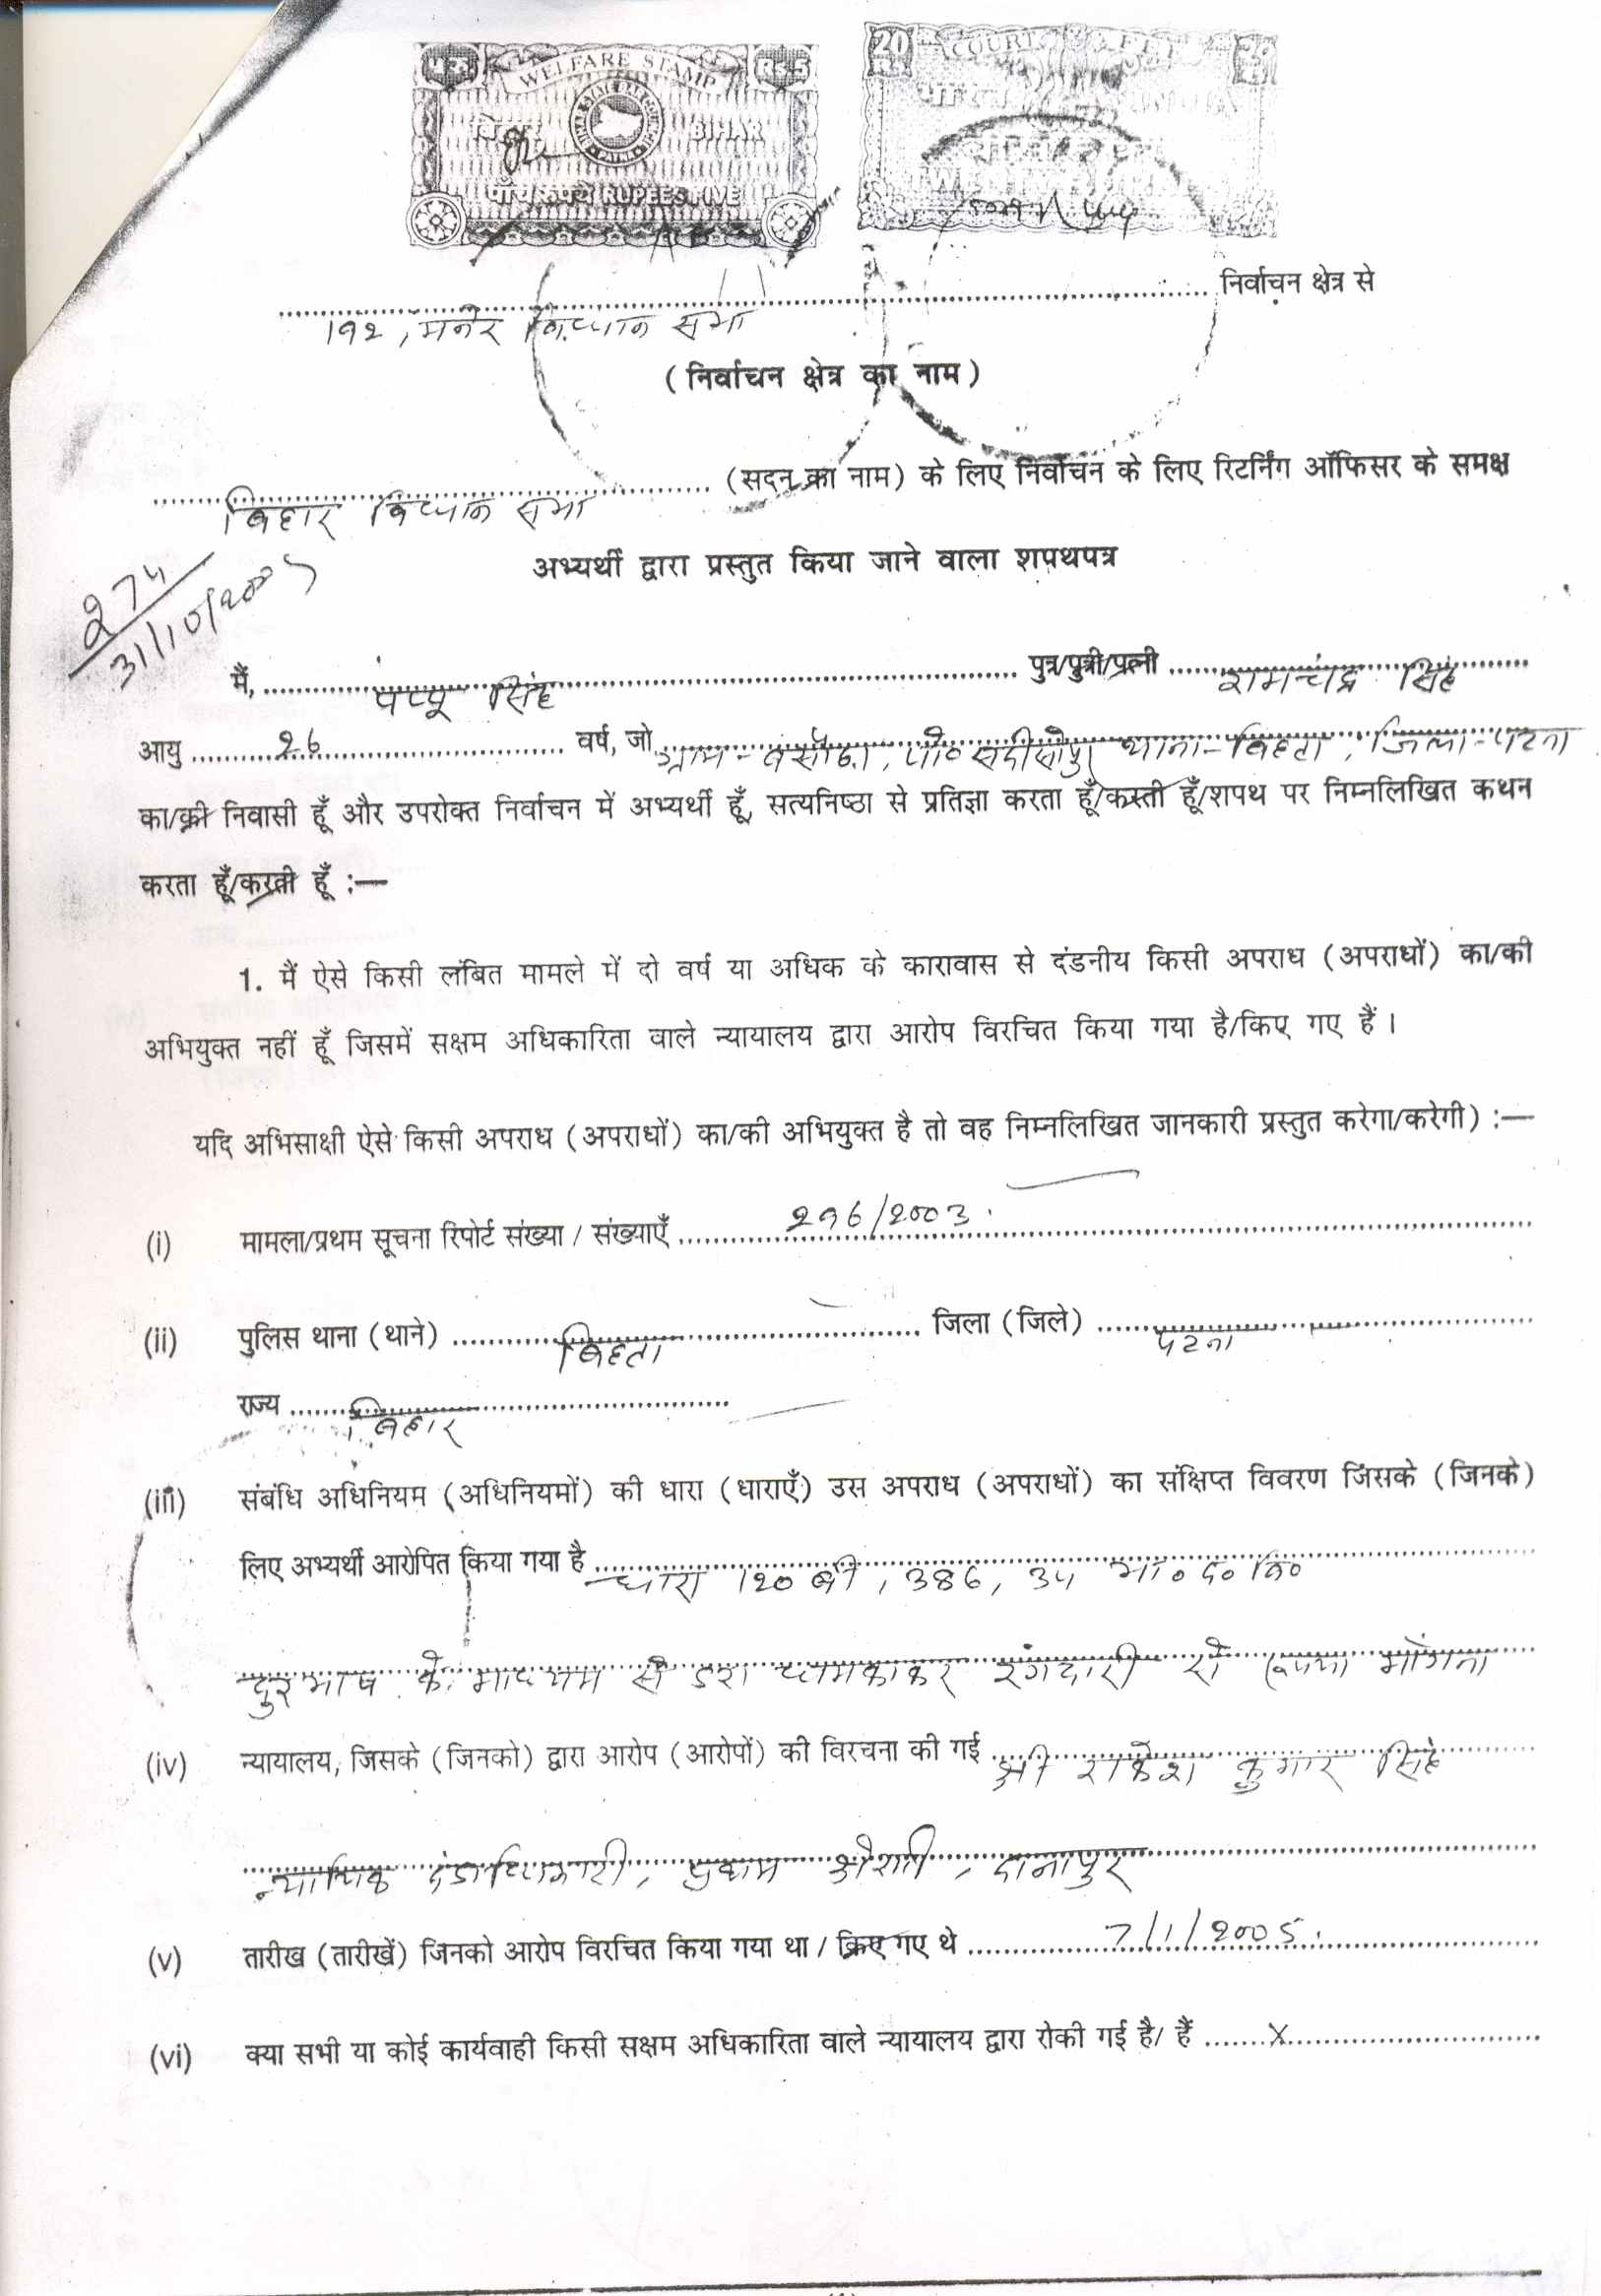 ५ रु. WELFARE STAMP Rs.5
BIHAR
पाँच रुपये RUPEES FIVE
20 COURT FEE 20
भारत INDIA
निर्वाचन क्षेत्र से
192, मनेर विधान सभा
(निर्वाचन क्षेत्र का नाम)
(सदन का नाम) के लिए निर्वाचन के लिए रिटर्निंग ऑफिसर के समक्ष
बिहार विधान सभा
अभ्यर्थी द्वारा प्रस्तुत किया जाने वाला शपथपत्र
274
31/10/2005
मैं, पप्पू सिंह पुत्र/पुत्री/पत्नी रामचंद्र सिंह
आयु 26 वर्ष, जो ग्राम - बसौढ़ा, पो० सदीसोपुर थाना - बिहटा, जिला - पटना
का/की निवासी हूँ और उपरोक्त निर्वाचन में अभ्यर्थी हूँ, सत्यनिष्ठा से प्रतिज्ञा करता हूँ/करती हूँ/शपथ पर निम्नलिखित कथन
करता हूँ/करती हूँ :—
1. मैं ऐसे किसी लंबित मामले में दो वर्ष या अधिक के कारावास से दंडनीय किसी अपराध (अपराधों) का/की
अभियुक्त नहीं हूँ जिसमें सक्षम अधिकारिता वाले न्यायालय द्वारा आरोप विरचित किया गया है/किए गए हैं ।
यदि अभिसाक्षी ऐसे किसी अपराध (अपराधों) का/की अभियुक्त है तो वह निम्नलिखित जानकारी प्रस्तुत करेगा/करेगी) :—
(i) मामला/प्रथम सूचना रिपोर्ट संख्या / संख्याएँ 296/2003
(ii) पुलिस थाना (थाने) बिहटा जिला (जिले) पटना
राज्य बिहार
(iii) संबंधि अधिनियम (अधिनियमों) की धारा (धाराएँ) उस अपराध (अपराधों) का संक्षिप्त विवरण जिसके (जिनके)
लिए अभ्यर्थी आरोपित किया गया है धारा 120 बी, 386, 34 भा० द० वि०
दुरभाष के माध्यम से डरा धमकाकर रंगदारी से रूपया माँगना
(iv) न्यायालय, जिसके (जिनको) द्वारा आरोप (आरोपों) की विरचना की गई श्री राकेश कुमार सिंह
न्यायिक दंडाधिकारी, प्रथम श्रेणी, दानापुर
(v) तारीख (तारीखें) जिनको आरोप विरचित किया गया था / किए गए थे 7/1/2005.
(vi) क्या सभी या कोई कार्यवाही किसी सक्षम अधिकारिता वाले न्यायालय द्वारा रोकी गई है/ हैं X